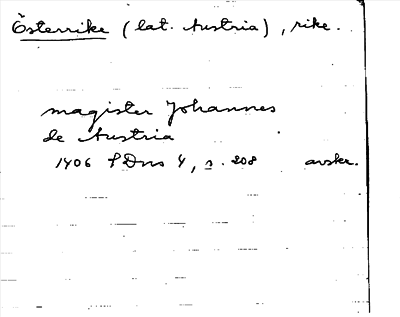 Österrike (lat. Austria), rike.
magister Johannes
de Austria
1406 SDns 4, s. 208 avskr.